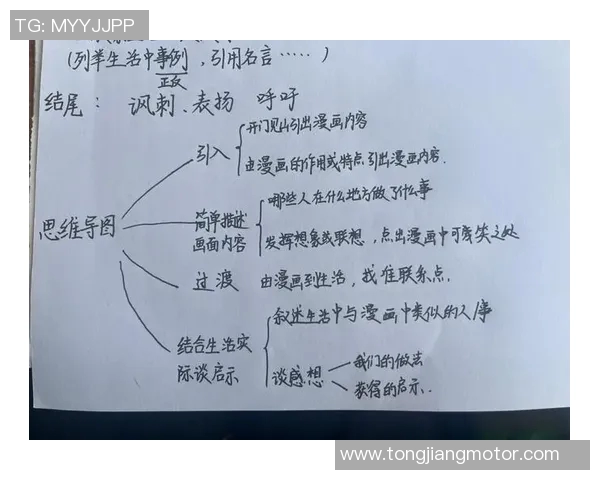 TG: MYYJJPP
(列举生活中事例，引用名言……)
正反
结尾： 讽刺、表扬 呼吁
思维导图
引入
开门见山引出漫画内容
由漫画的作用或特点引出漫画内容.
简单描述
画面内容
哪些人在什么地方做了什么事
发挥想象或联想，点出漫画中可笑之处
过渡 由漫画到生活，找准联系点.
结合生活实
际谈启示
叙述生活中与漫画中类似的人事
谈感想
我们的做法
获得的启示.
www.tongjiangmotor.com